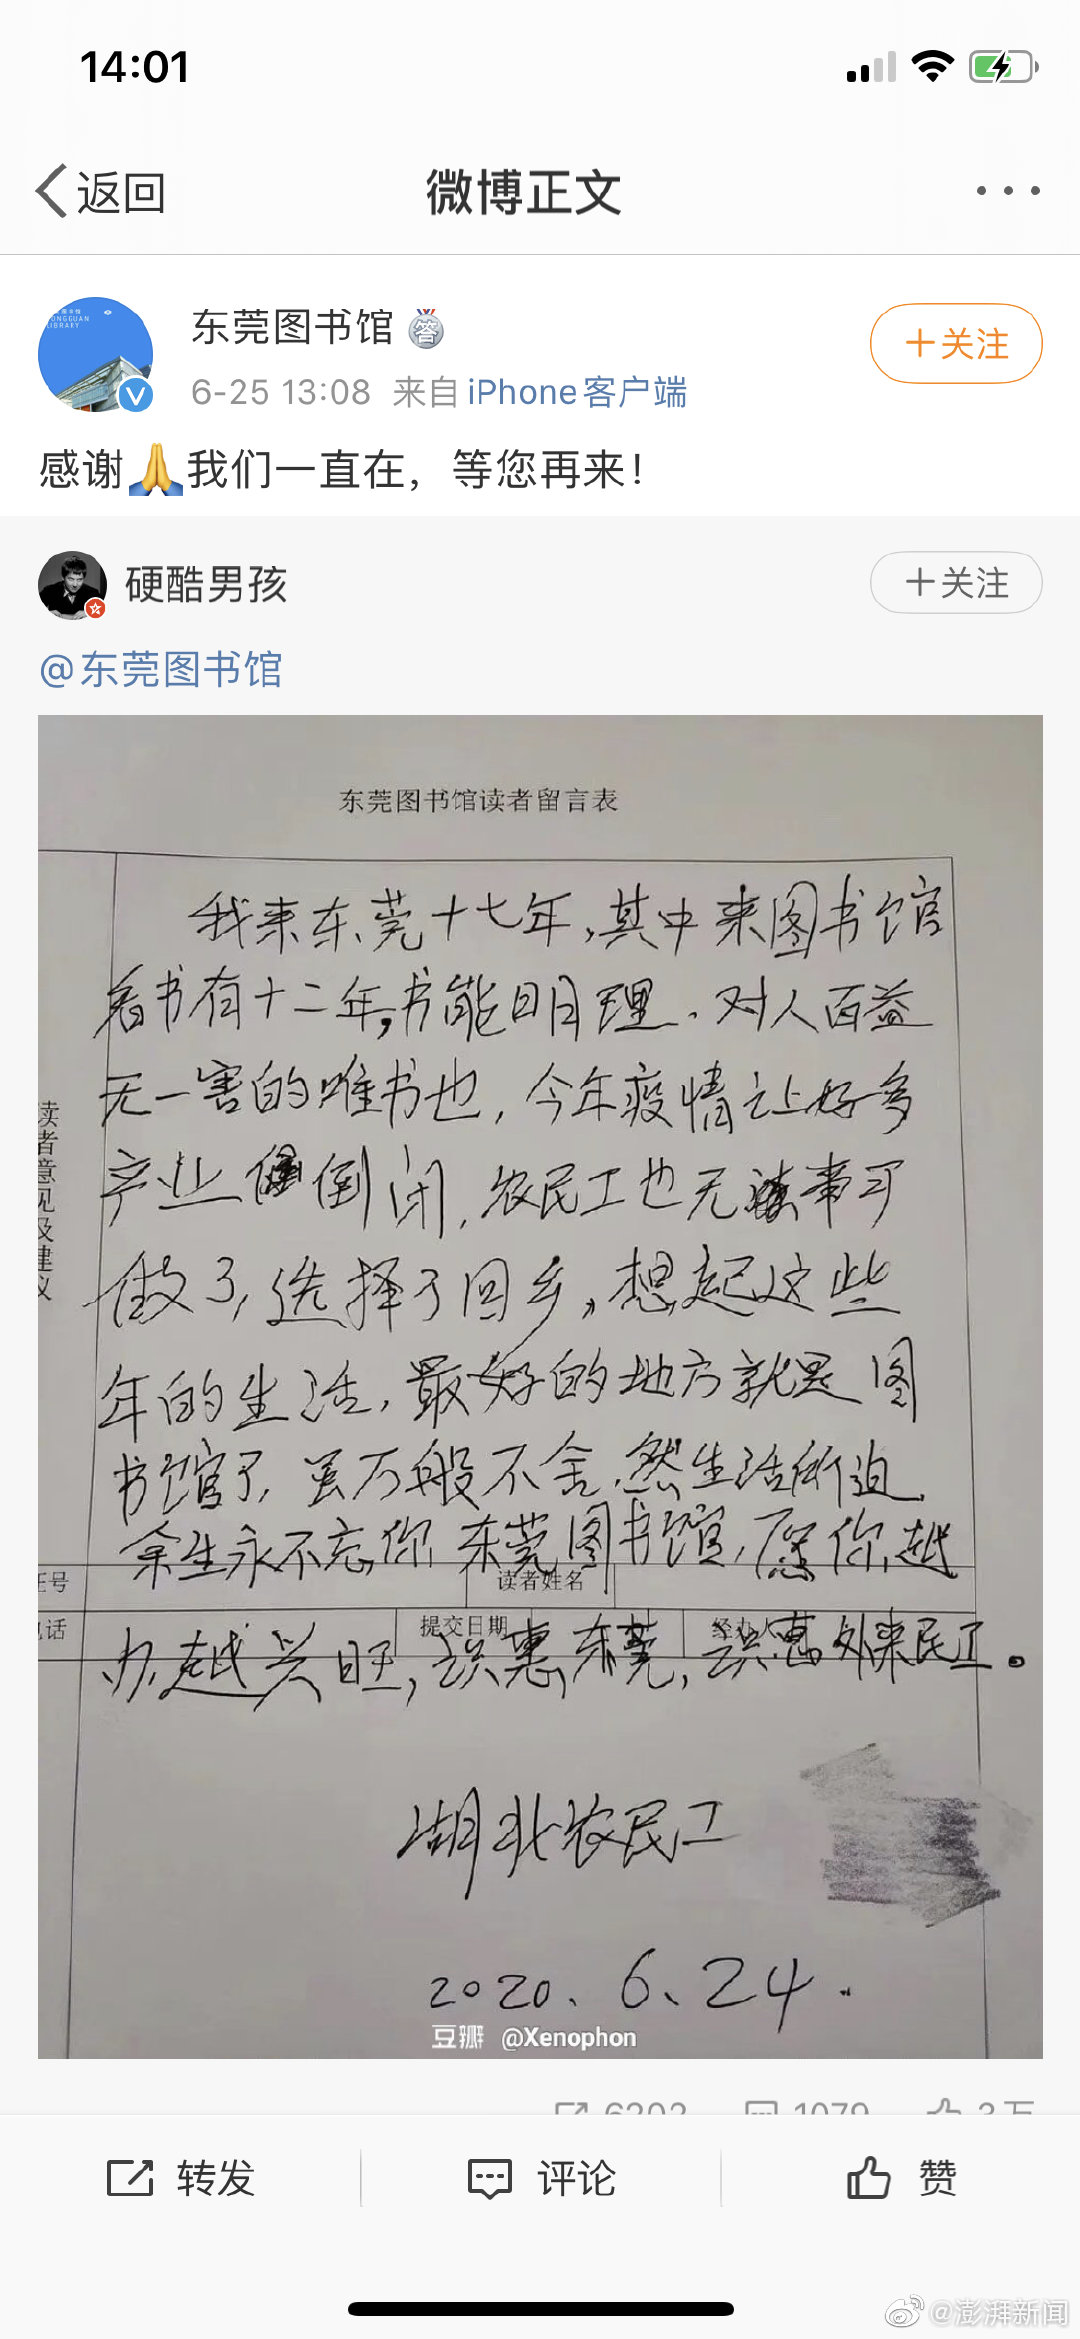 14:01
返回
微博正文
东莞图书馆
6-25 13:08 来自 iPhone客户端
+关注
感谢🙏我们一直在，等您再来！
硬酷男孩
+关注
@东莞图书馆
东莞图书馆读者留言表
我来东莞十七年，其中来图书馆
看书有十二年，书能明理、对人百益
无一害的唯书也，今年疫情让好多
产业倒闭，农民工也无事可
做了，选择了回乡，想起这些
年的生活，最好的地方就是图
书馆了，虽万般不舍，然生活所迫，
余生永不忘你，东莞图书馆，愿你越
办越兴旺，识惠东莞，识惠外来民工。
读者意见及建议
证号
读者姓名
电话
提交日期
经办人
湖北农民工
2020.6.24.
豆瓣 @Xenophon
6202
1079
3万
转发
评论
赞
@澎湃新闻